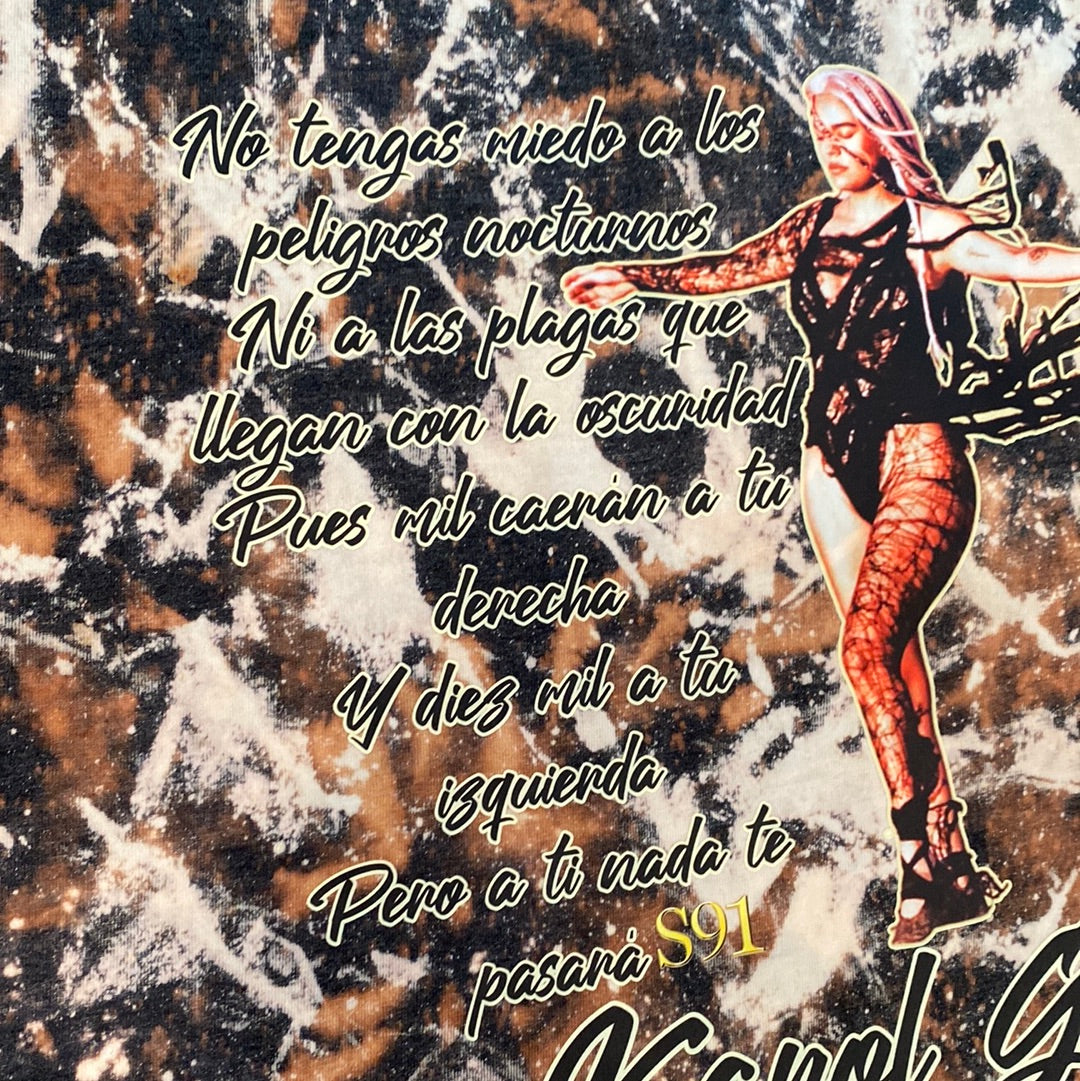 No tengas miedo a los
peligros nocturnos
Ni a las plagas que
llegan con la oscuridad
Pues mil caerán a tu
derecha
Y diez mil a tu
izquierda
Pero a ti nada te
pasará S91
Karol G